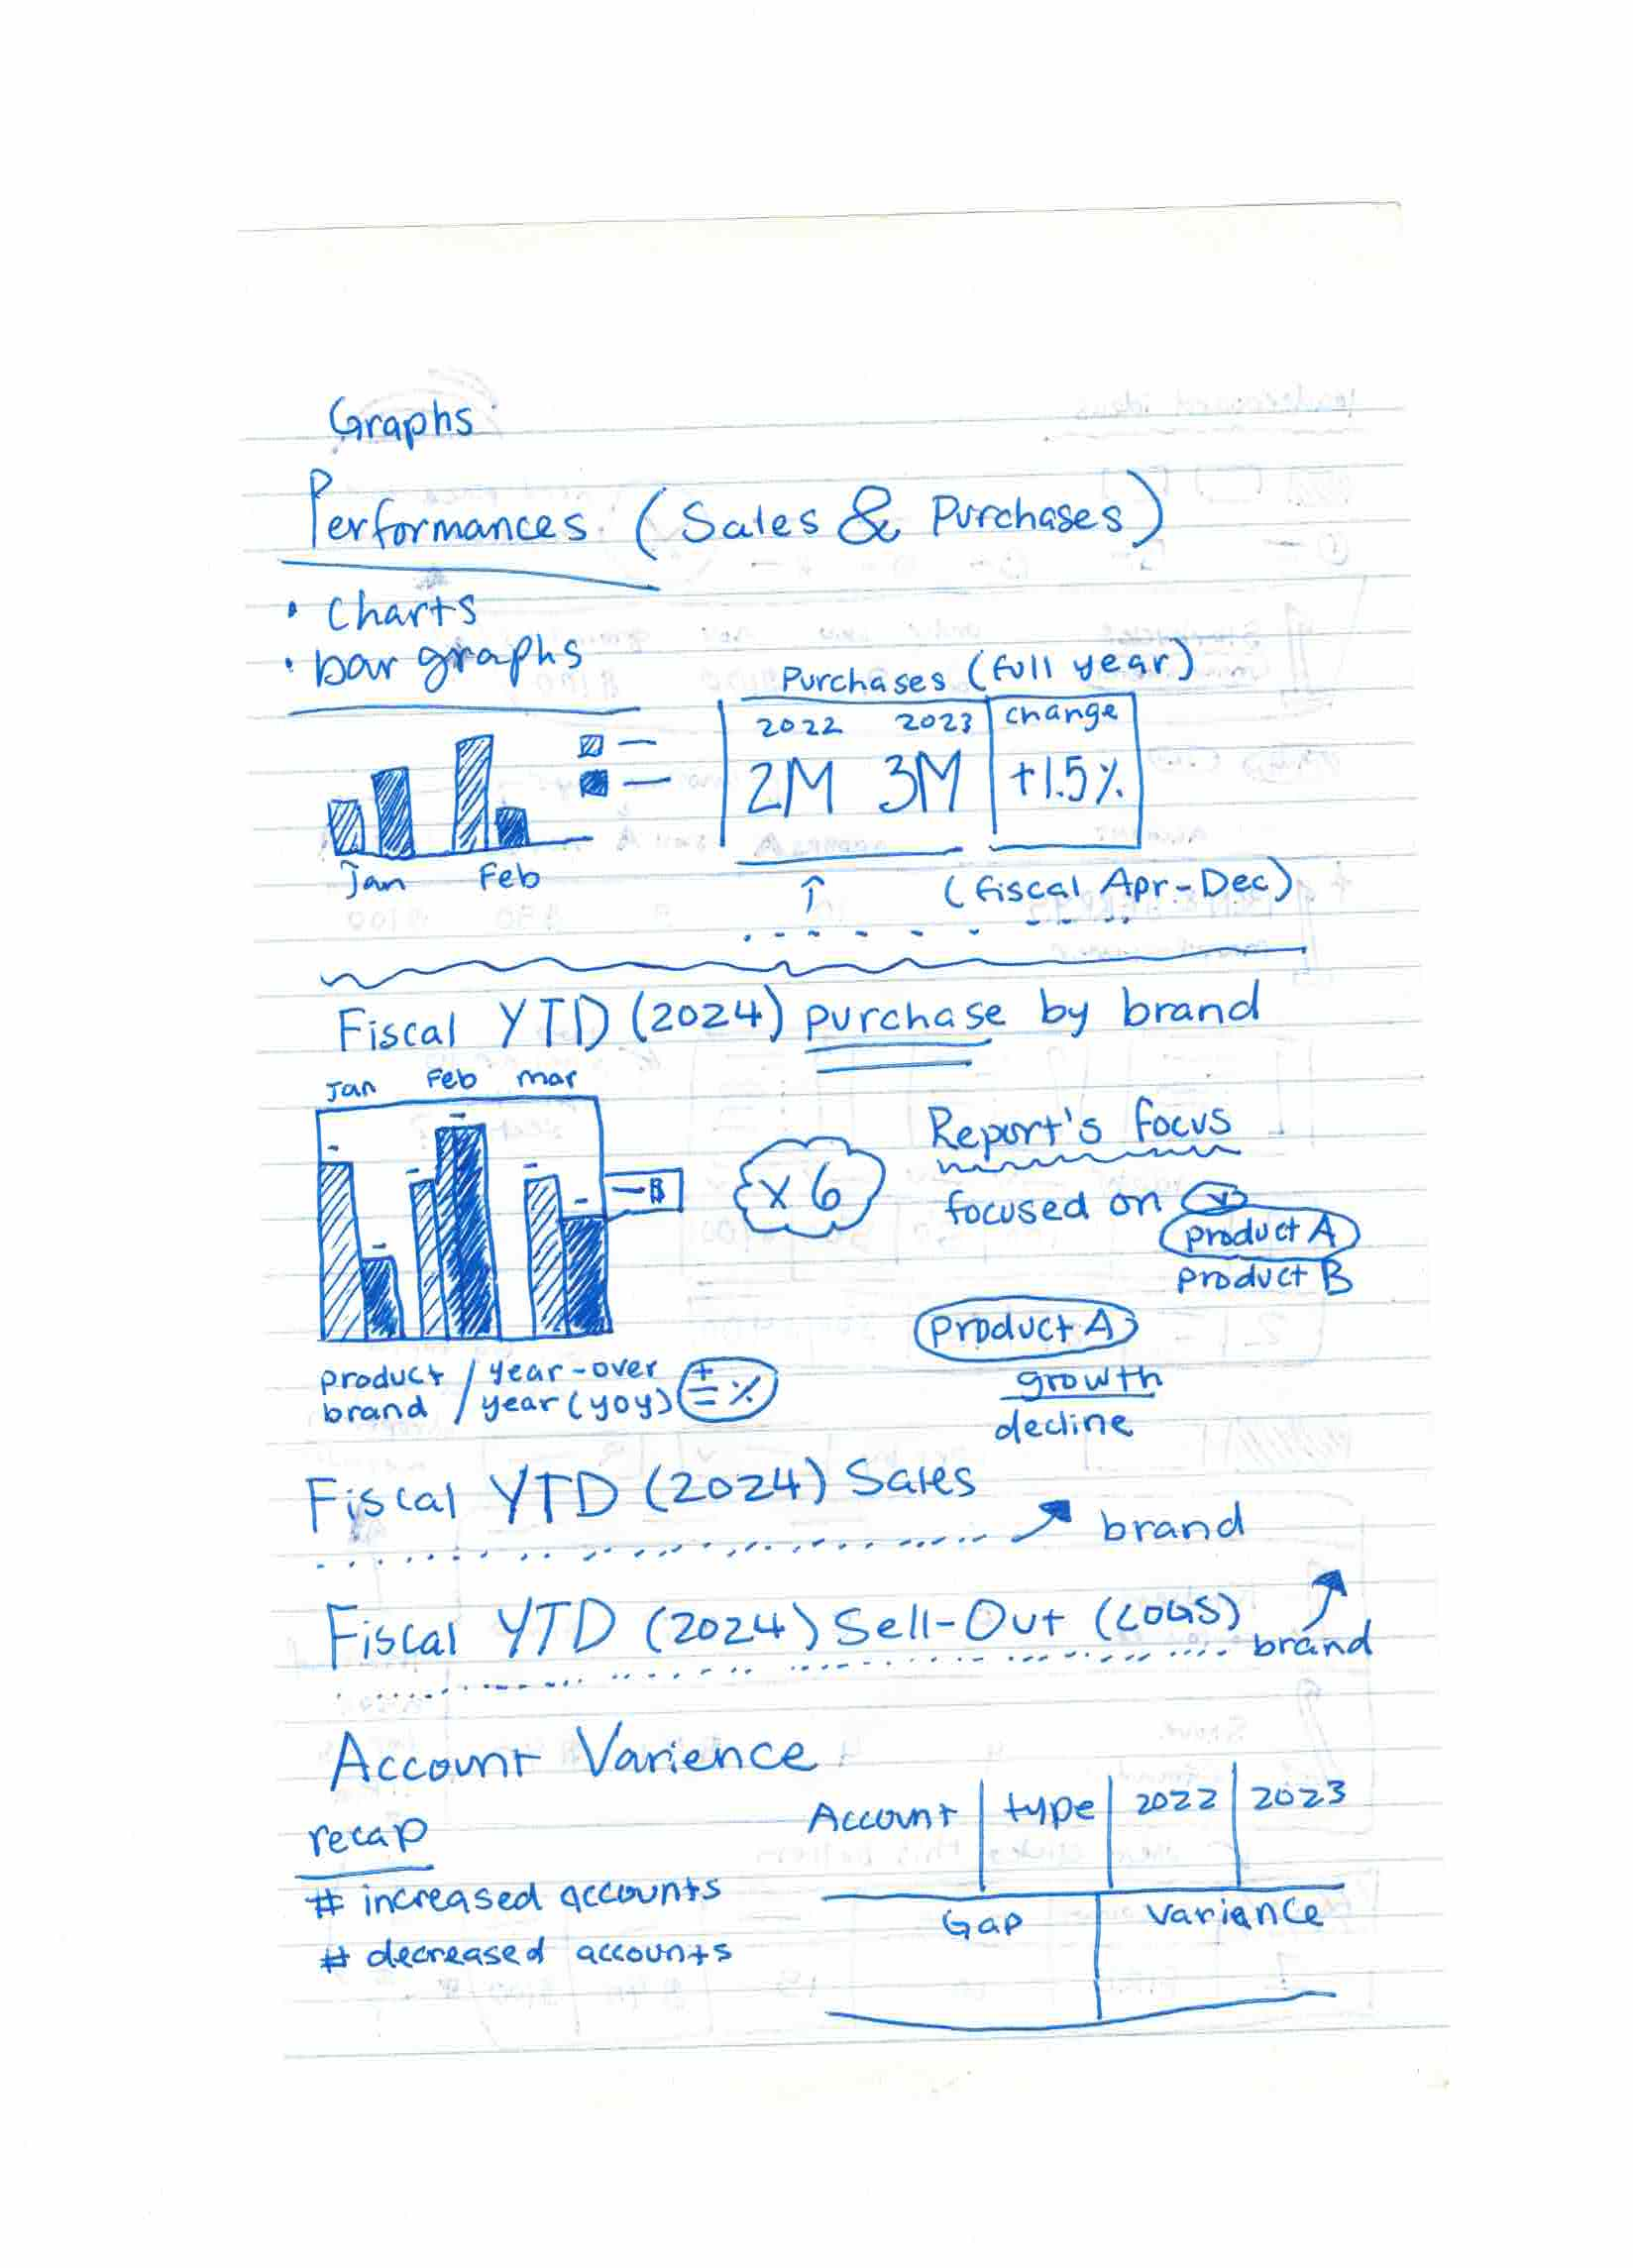 Graphs
Performances (Sales & Purchases)
• Charts
• bar graphs
Purchases (full year)
2022 2023 change
2M 3M +1.5%
Jan Feb
(fiscal Apr-Dec)
Fiscal YTD (2024) purchase by brand
Jan Feb mar
Report's focus
x 6
B
focused on
product A
product B
product A
growth
decline
product / year-over
brand / year (yoy) + = %
Fiscal YTD (2024) Sales
brand
Fiscal YTD (2024) Sell-Out (COGS)
brand
Account Varience
recap
Account type 2022 2023
# increased accounts
Gap Variance
# decreased accounts